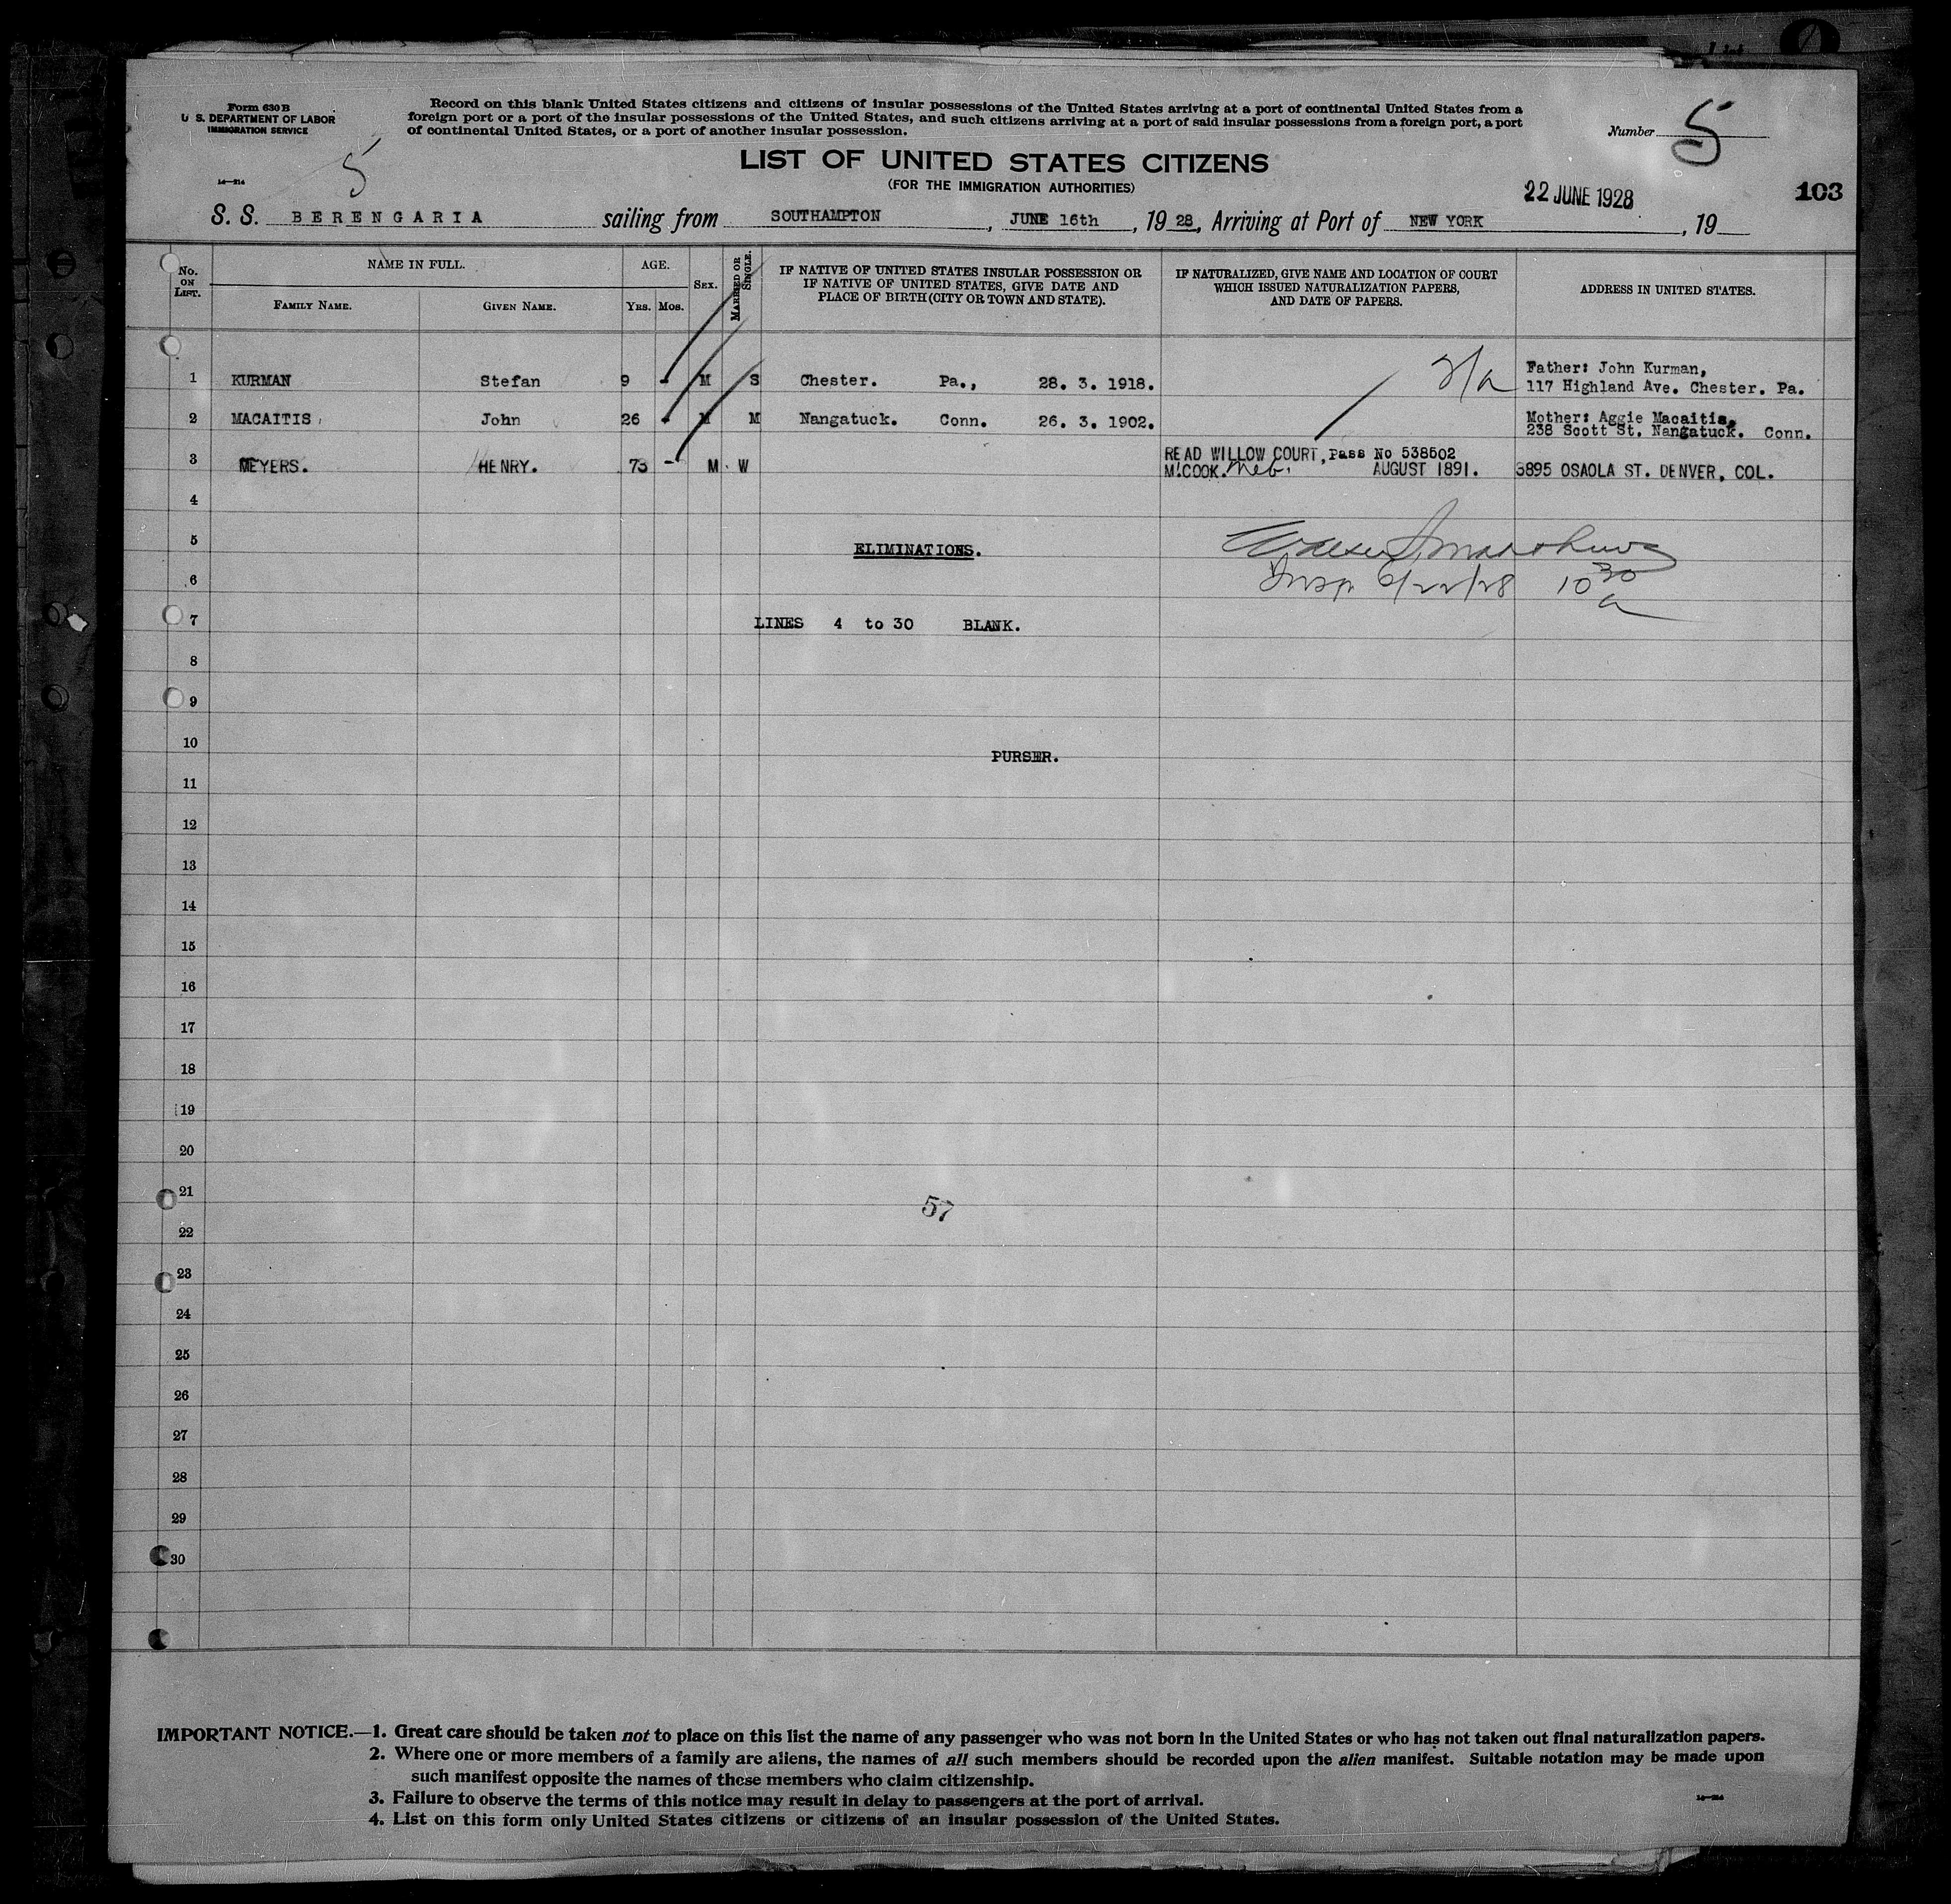 Form 630 B
U. S. DEPARTMENT OF LABOR
IMMIGRATION SERVICE
14—214
5
Record on this blank United States citizens and citizens of insular possessions of the United States arriving at a port of continental United States from a
foreign port or a port of the insular possessions of the United States, and such citizens arriving at a port of said insular possessions from a foreign port, a port
of continental United States, or a port of another insular possession.
Number 5
LIST OF UNITED STATES CITIZENS
(FOR THE IMMIGRATION AUTHORITIES)
22 JUNE 1928
103
S. S. BERENGARIA sailing from SOUTHAMPTON, JUNE 16th, 19 28, Arriving at Port of NEW YORK, 19
No. ON LIST.
NAME IN FULL.
FAMILY NAME.
GIVEN NAME.
AGE.
YRS.
MOS.
SEX.
MARRIED OR SINGLE.
IF NATIVE OF UNITED STATES INSULAR POSSESSION OR
IF NATIVE OF UNITED STATES, GIVE DATE AND
PLACE OF BIRTH (CITY OR TOWN AND STATE).
IF NATURALIZED, GIVE NAME AND LOCATION OF COURT
WHICH ISSUED NATURALIZATION PAPERS,
AND DATE OF PAPERS.
ADDRESS IN UNITED STATES.
1 KURMAN Stefan 9 - M S Chester. Pa., 28. 3. 1918. Father: John Kurman,
117 Highland Ave. Chester. Pa.
2 MACAITIS John 26 - M M Nangatuck. Conn. 26. 3. 1902. Mother: Aggie Macaitis,
238 Scott St. Nangatuck. Conn.
3 MEYERS. HENRY. 73 - M W READ WILLOW COURT, Pass No 538502
McCOOK. Neb. AUGUST 1891. 3895 OSAOLA ST. DENVER, COL.
4
5 ELIMINATIONS.
6 Insp 6/22/28 10 30 a
7 LINES 4 to 30 BLANK.
8
9
10 PURSER.
11
12
13
14
15
16
17
18
19
20
21 57
22
23
24
25
26
27
28
29
30
IMPORTANT NOTICE.—1. Great care should be taken not to place on this list the name of any passenger who was not born in the United States or who has not taken out final naturalization papers.
2. Where one or more members of a family are aliens, the names of all such members should be recorded upon the alien manifest. Suitable notation may be made upon
such manifest opposite the names of these members who claim citizenship.
3. Failure to observe the terms of this notice may result in delay to passengers at the port of arrival.
14—214
4. List on this form only United States citizens or citizens of an insular possession of the United States.